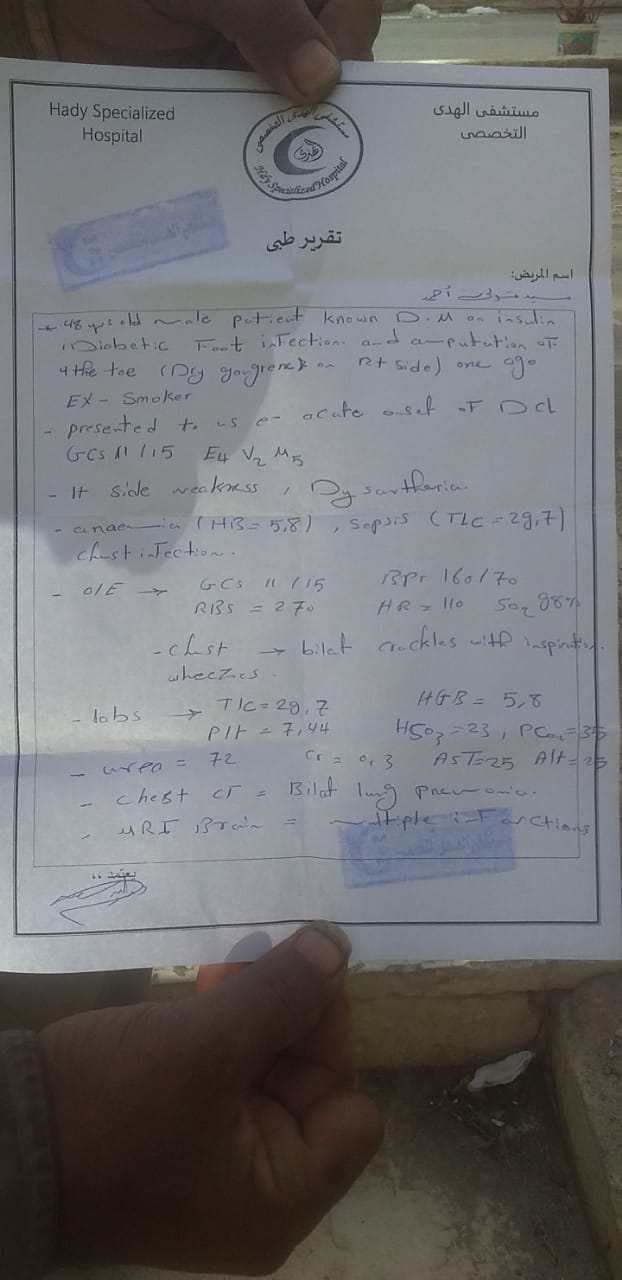 Hady Specialized
Hospital
مستشفى الهدى
التخصصى
مستشفى الهدى التخصصى
الهدى
Hdy Specialized Hospital
تقرير طبى
اسم المريض:
سيد متولى أحمد
* 48 yrs old male patient known D.M on insulin
, Diabetic Foot infection. and amputation of
4 the toe (Dry gangrene on Rt side) one ago
EX - Smoker
- presented to us e- acute onset of DCL
GCS 11/15 E4 V2 M5
- lt side weakness, Dysartheria.
- anaemia (HB = 5,8), sepsis (TLC = 29,7)
chest infection.
- O/E → GCS 11/15 BPr 160/70
RBS = 270 HR = 110 SO2 98%
- chest → bilat crackles with inspiration.
wheezies.
- labs → TLC = 29,7 HGB = 5,8
PH = 7,44 HCO3 = 23, PCO2 = 35
- urea = 72 Cr = 0,3 AST=25 Alt = 25
- Chest CT = Bilat lung pneumonia.
- MRI Brain = multiple infarctions
يعتمد ،،